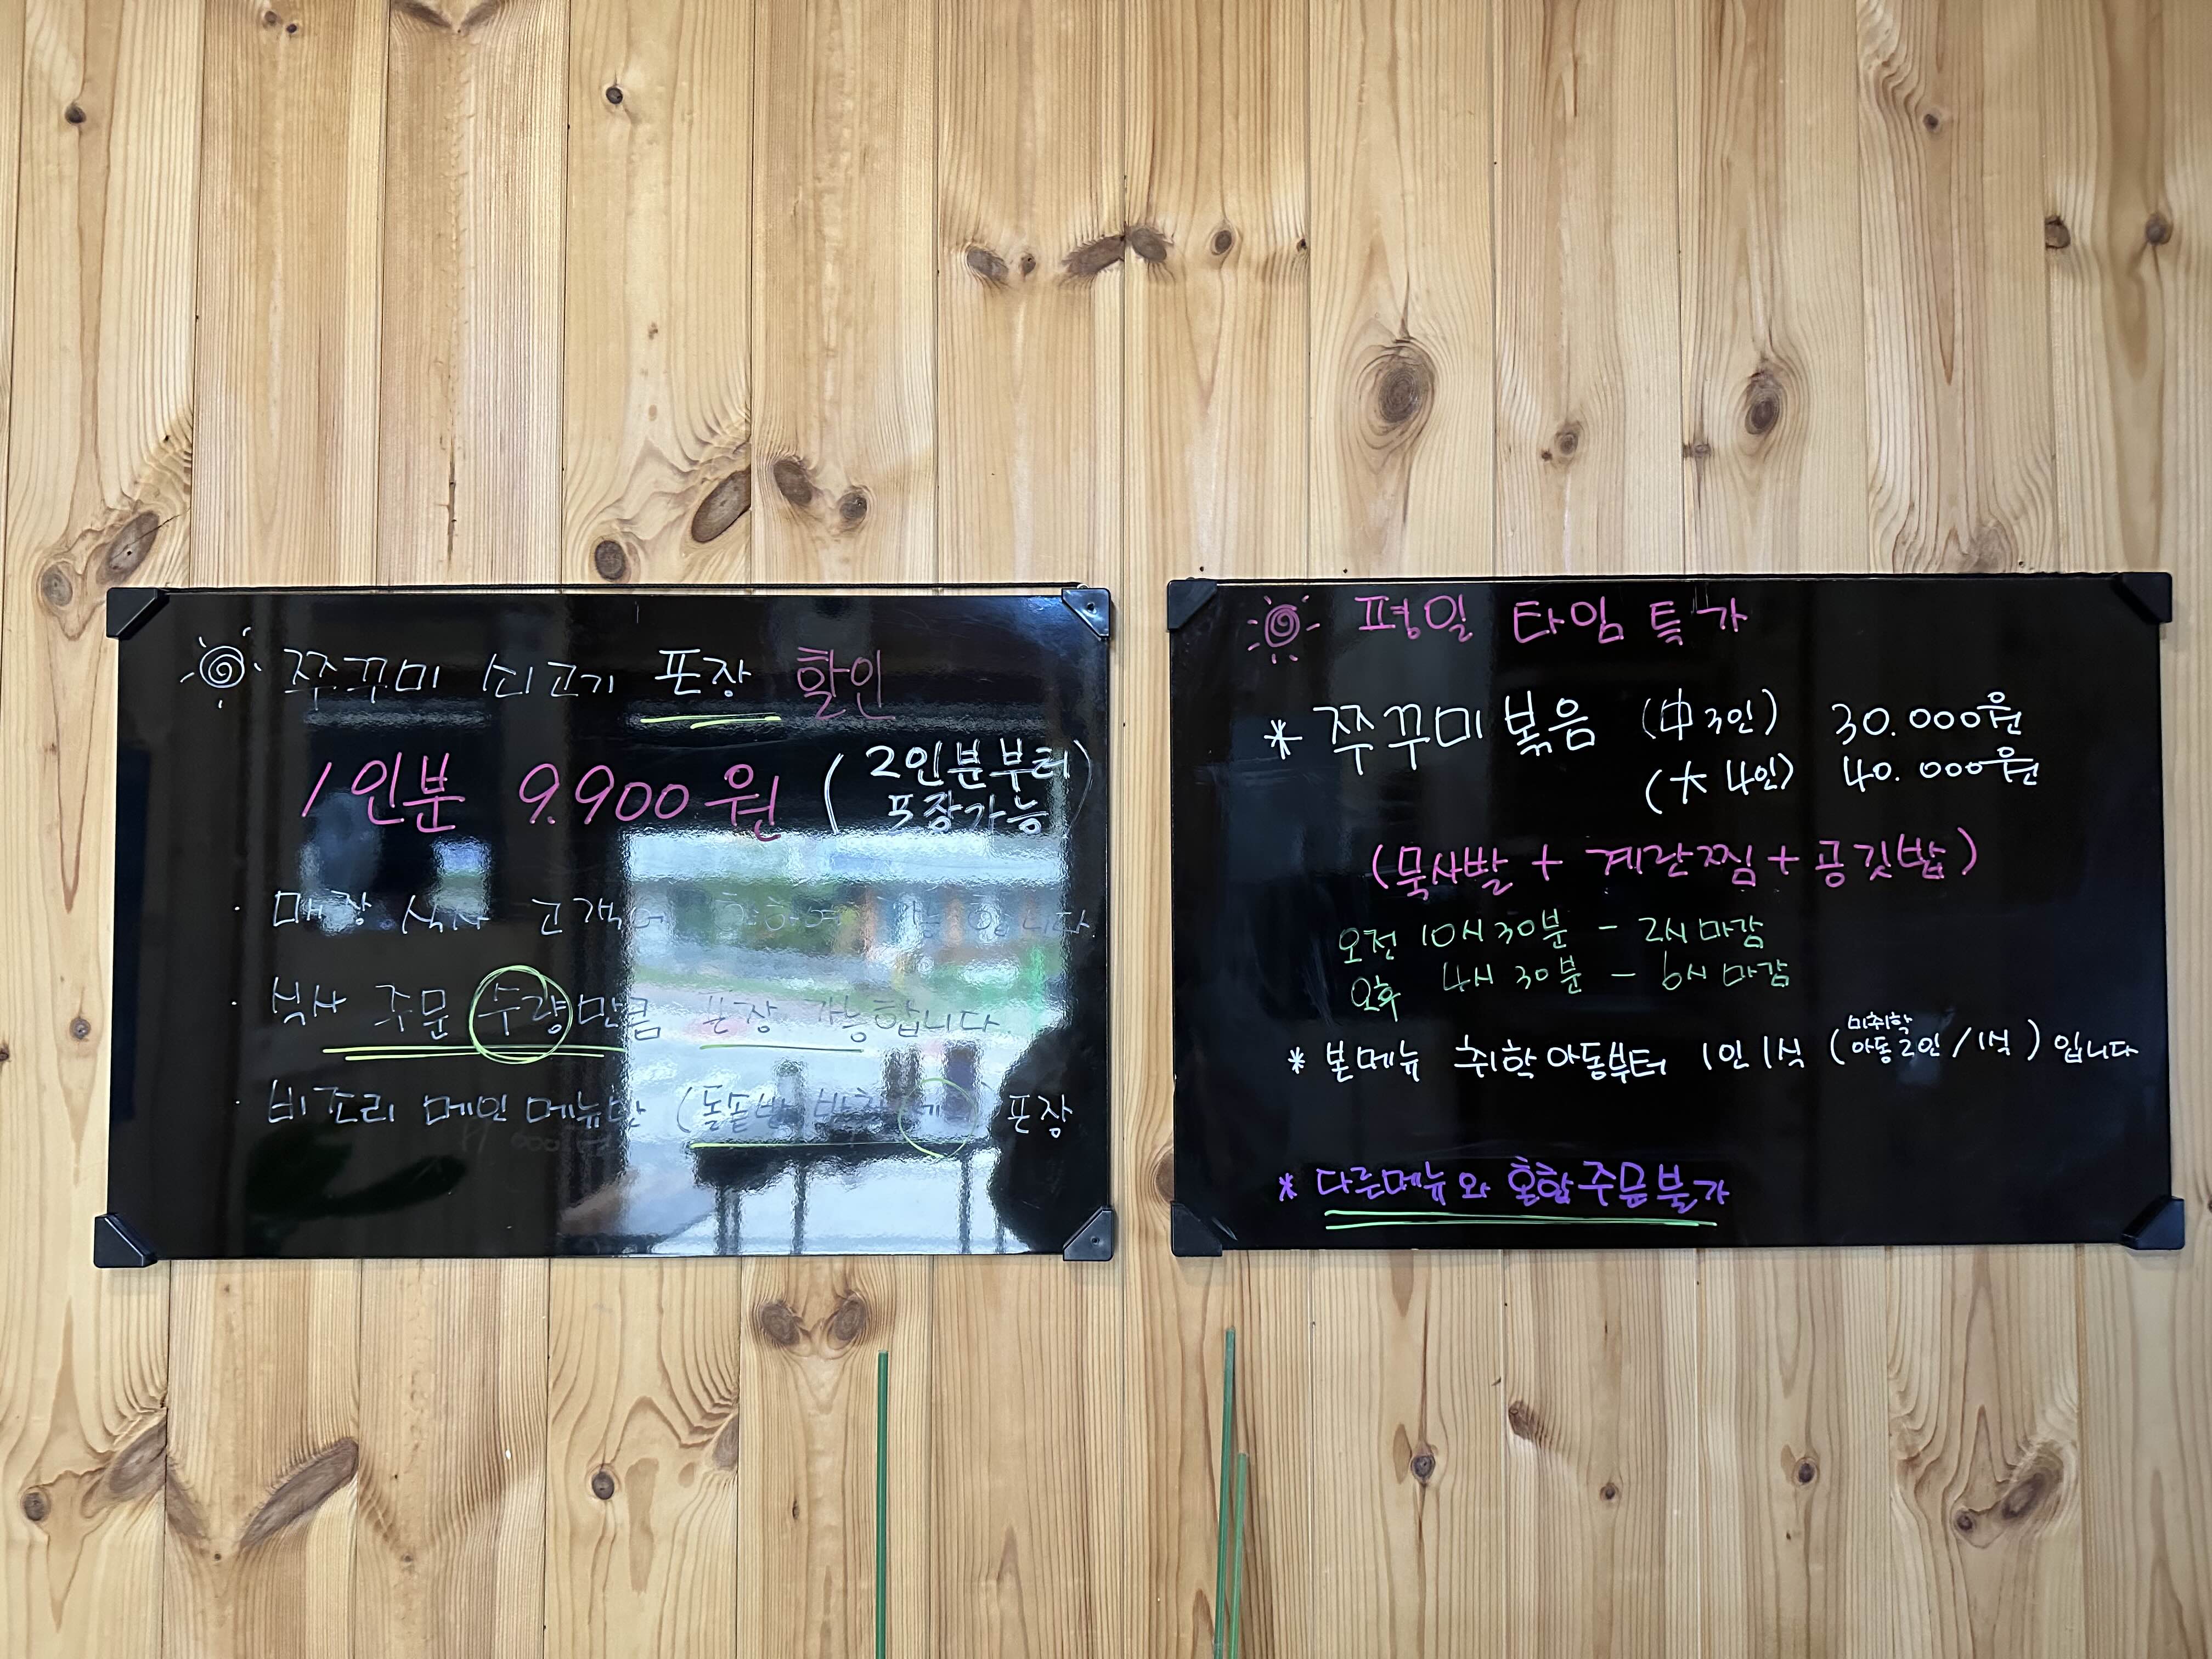 쭈꾸미 쇠고기 포장 할인
1인분 9.900원 (2인분부터
포장가능)
· 매장 식사 고객에 한하여 가능합니다.
· 식사 주문 수량만큼 포장 가능합니다.
· 비조리 메인메뉴만 (돌솥밥 반찬 제외) 포장
평일 타임 특가
* 쭈꾸미볶음 (中 3인) 30.000원
(大 4인) 40.000원
(묵사발 + 계란찜 + 공깃밥)
오전 10시 30분 - 2시 마감
오후 4시 30분 - 6시 마감
* 본메뉴 취학아동부터 1인 1식 (미취학 아동 2인 / 1식) 입니다
* 다른메뉴와 혼합주문불가